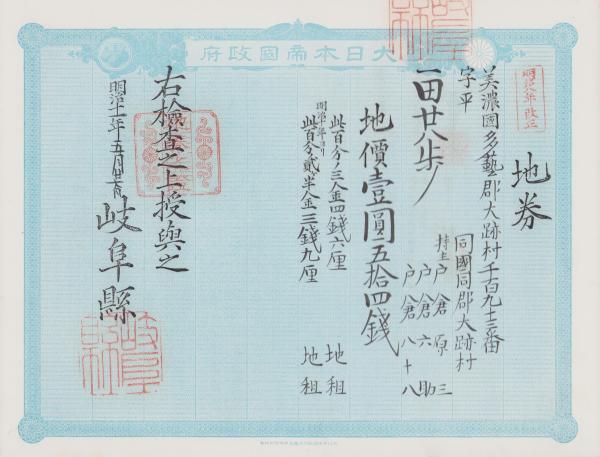 大日本帝國政府
明治九年改正
地券
美濃國多藝郡大跡村千百九十三番
字平
同國同郡大跡村
持主 戸倉原三
戸倉六助
戸倉八十八
一田廿八歩
地價壹圓五拾四錢
此百分ノ三金四錢六厘 地租
明治十年ヨリ
此百分ノ貳半金三錢九厘 地租
右檢査之上授與之
明治十一年五月廿日
岐阜縣